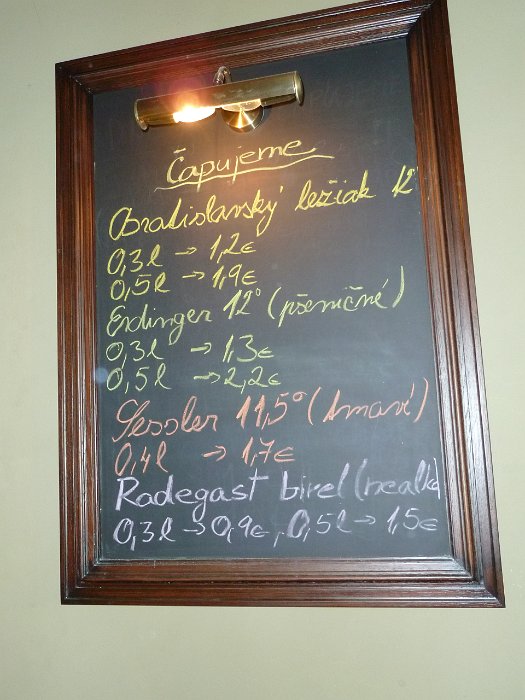 Čapujeme
Bratislavský ležiak 12°
0,3l → 1,2€
0,5l → 1,9€
Erdinger 12° (pšeničné)
0,3l → 1,3€
0,5l → 2,2€
Sessler 11,5° (tmavé)
0,4l → 1,7€
Radegast birel (nealko
0,3l → 0,9€, 0,5l → 1,5€